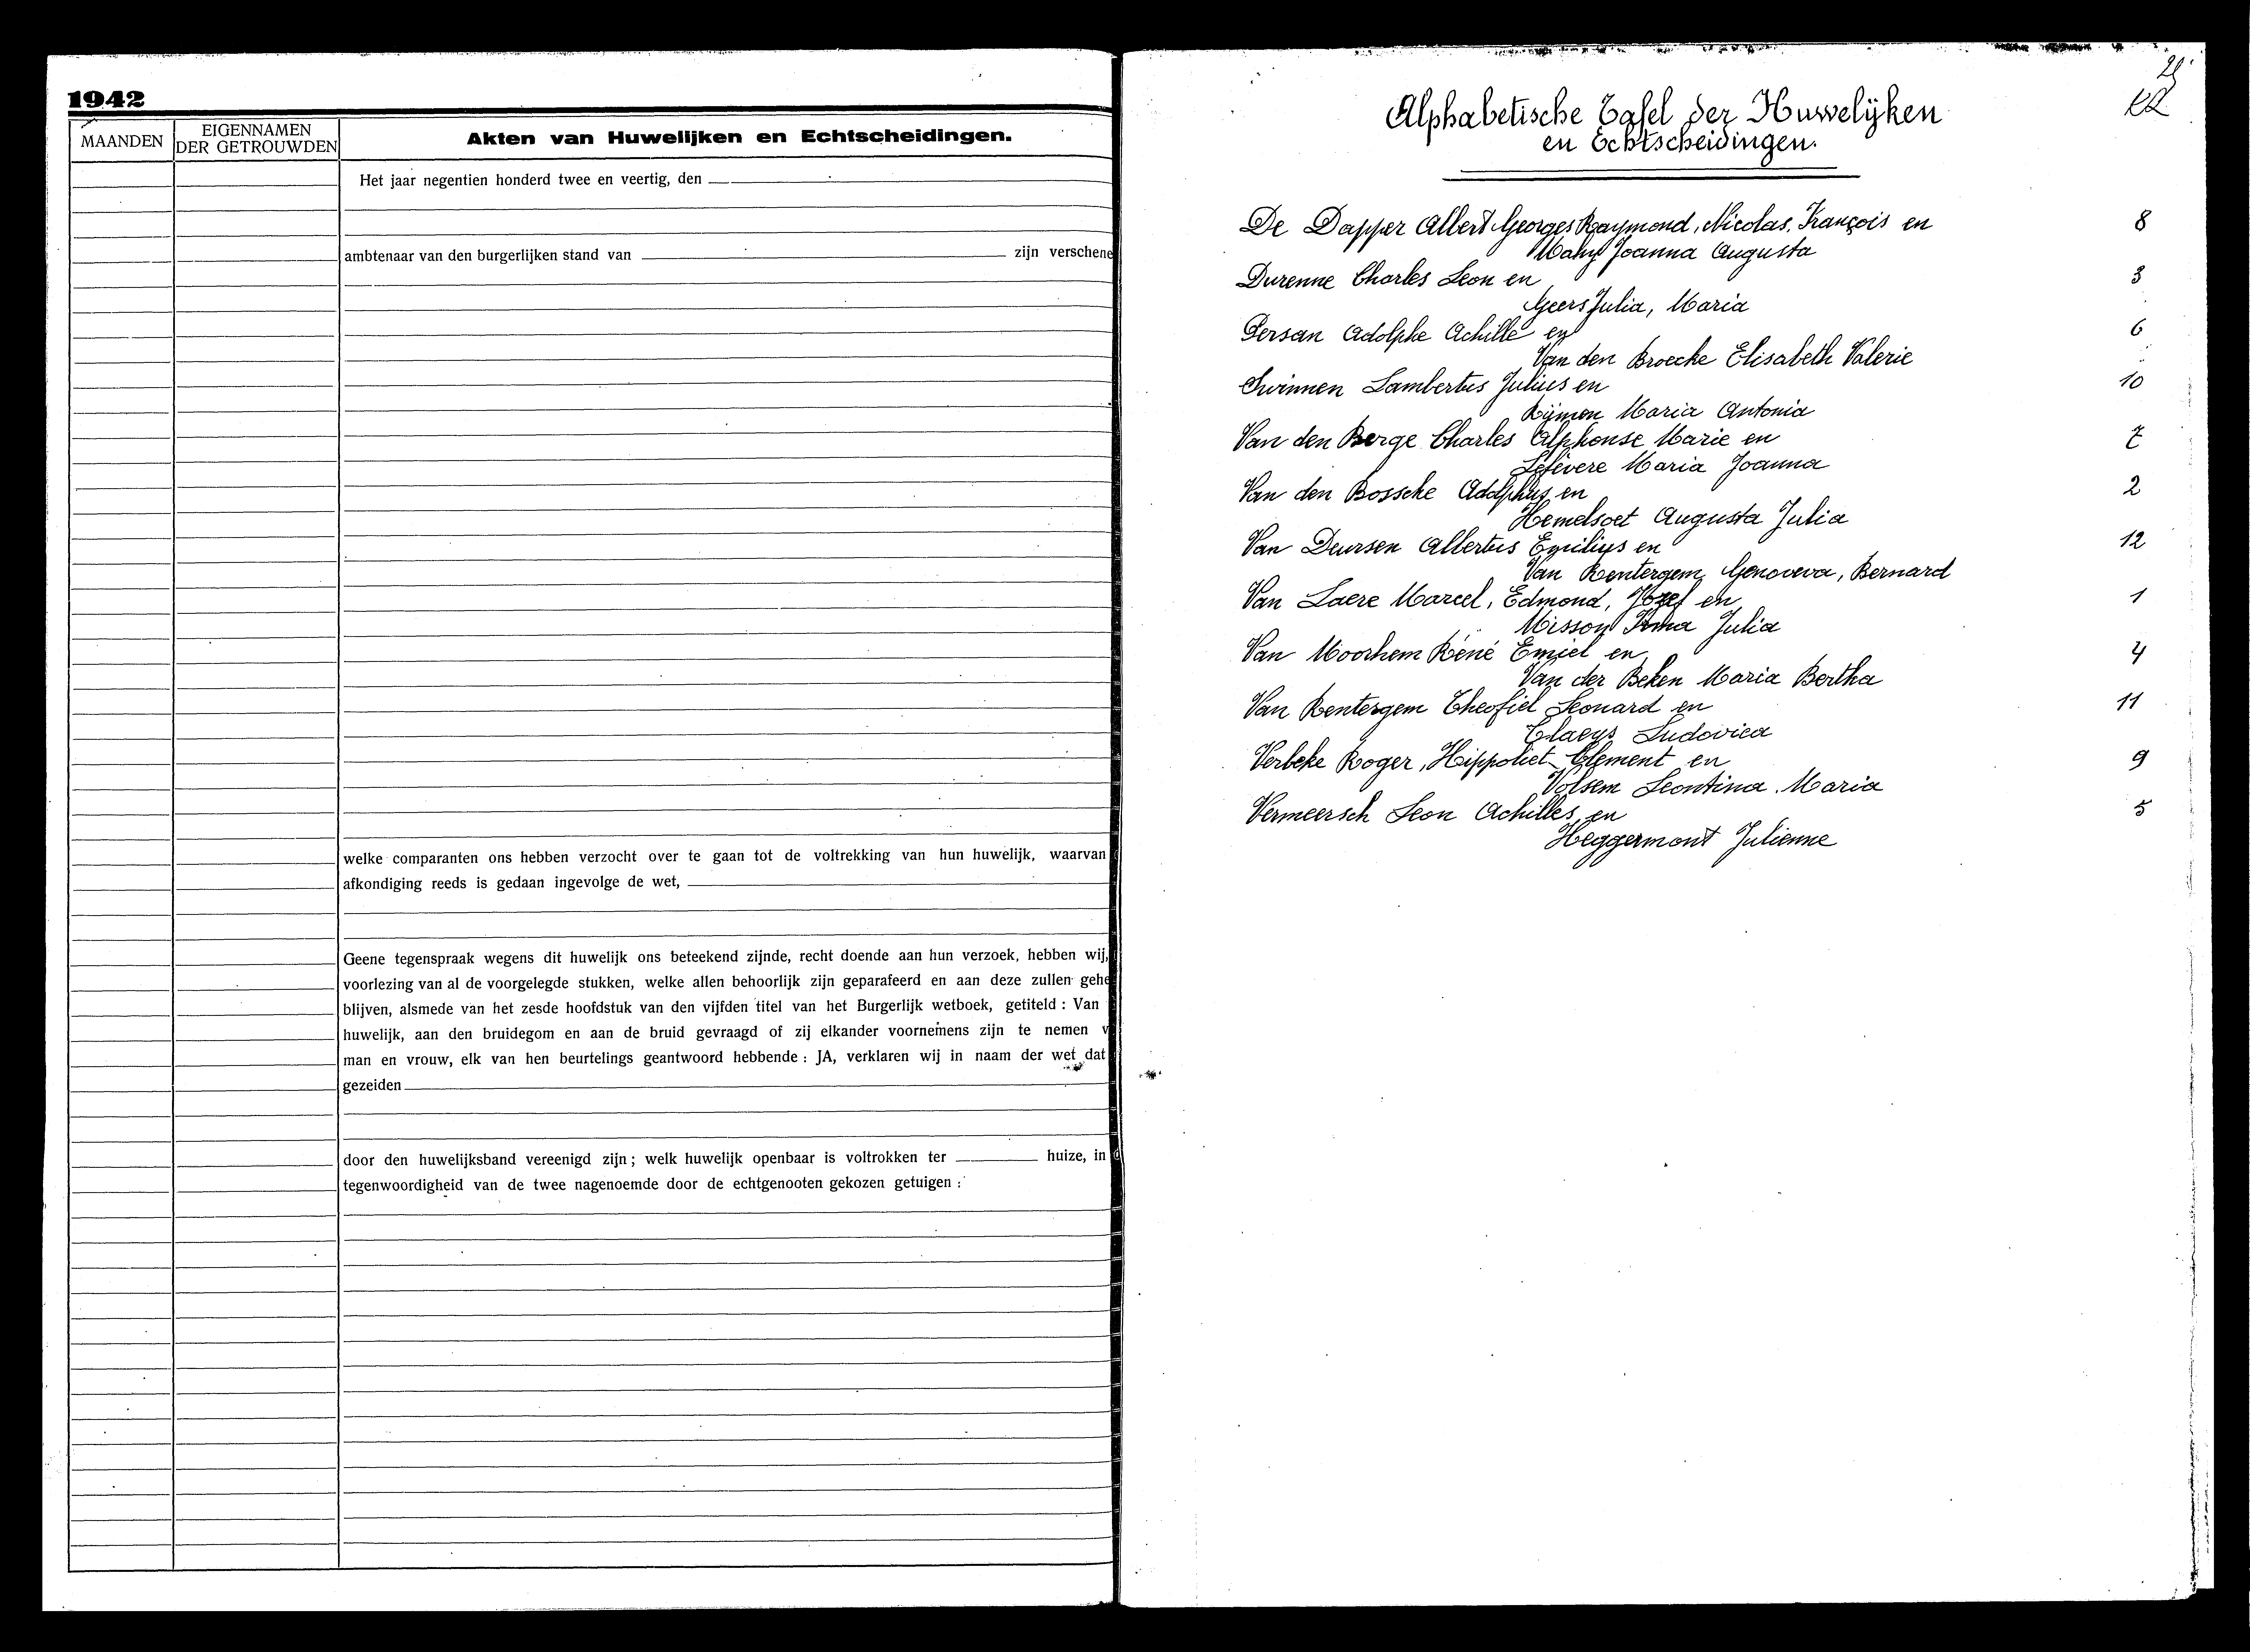 1942
MAANDEN
EIGENNAMEN
DER GETROUWDEN
Akten van Huwelijken en Echtscheidingen.
Het jaar negentien honderd twee en veertig, den
ambtenaar van den burgerlijken stand van zijn verschene
welke comparanten ons hebben verzocht over te gaan tot de voltrekking van hun huwelijk, waarvan
afkondiging reeds is gedaan ingevolge de wet,
Geene tegenspraak wegens dit huwelijk ons beteekend zijnde, recht doende aan hun verzoek, hebben wij,
voorlezing van al de voorgelegde stukken, welke allen behoorlijk zijn geparafeerd en aan deze zullen gehe
blijven, alsmede van het zesde hoofdstuk van den vijfden titel van het Burgerlijk wetboek, getiteld : Van
huwelijk, aan den bruidegom en aan de bruid gevraagd of zij elkander voornemens zijn te nemen v
man en vrouw, elk van hen beurtelings geantwoord hebbende : JA, verklaren wij in naam der wet dat
gezeiden
door den huwelijksband vereenigd zijn ; welk huwelijk openbaar is voltrokken ter huize, in
tegenwoordigheid van de twee nagenoemde door de echtgenooten gekozen getuigen :
Alphabetische Tafel der Huwelijken
en Echtscheidingen.
De Dapper Albert Georges Raymond, Nicolas, François en 8
Mahy Joanna Augusta
Durenne Charles Leon en 3
Geers Julia, Maria
Persan Adolphe Achille en 6
Van den Broecke Elisabeth Valerie
Swinnen Lambertus Julius en 10
Rijmen Maria Antonia
Van den Berge Charles Alphonse Marie en 7
Lefèvere Maria Joanna
Van den Bossche Adolphus en 2
Hemelsoet Augusta Julia
Van Deursen Albertus Emilius en 12
Van Rentergem Genoveva, Bernard
Van Laere Marcel, Edmond, Jozef en 1
Misson Irma Julia
Van Moorhem Réné Emiel en 4
Van der Beken Maria Bertha
Van Rentergem Theofiel Leonard en 11
Claeys Ludovica
Verbeke Roger, Hippoliet Clement en 9
Volsem Leontina Maria
Vermeersch Leon Achilles en 5
Heggermont Julienne